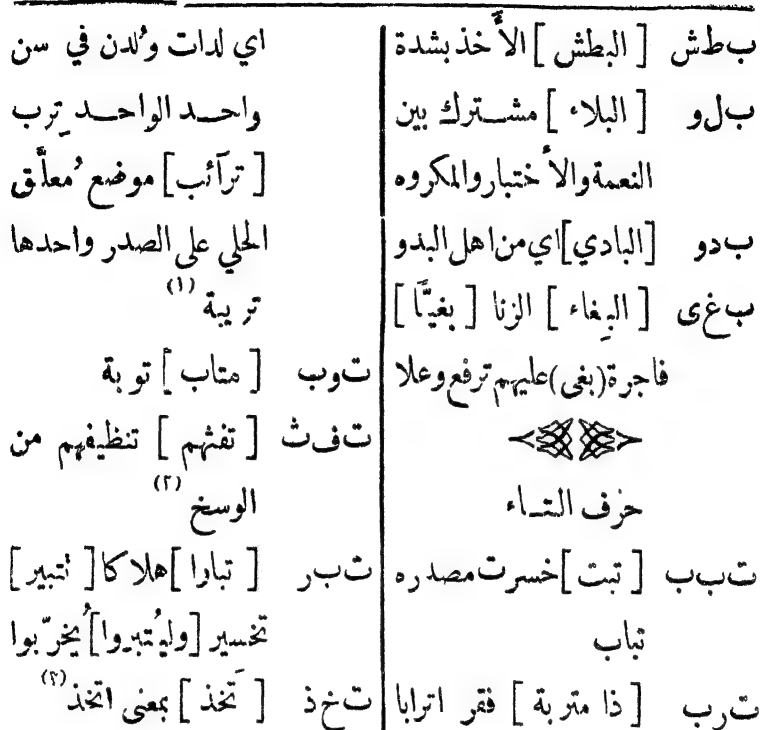 ب‌ط‌ش [ البطش ] الأخذ بشدة
ب‌ل‌و [ البلاء ] مشترك بين
النعمة والأختبار والمكروه
ب‌د‌و [البادي] اي من اهل البدو
ب‌غ‌ى [ البِغاء ] الزنا [ بغيًّا ]
فاجرة (بغى) عليهم ترفع وعلا
حرف التاء
ت‌ب‌ب [ تبت ] خسرت مصدره
تباب
ت‌ر‌ب [ ذا متربة ] فقر اترابا
اي لدات وُلدن في سن
واحد الواحد تِرب
[ ترآئب ] موضع مُعلَّق
الحلي على الصدر واحدها
تريبة (١)
ت‌و‌ب [ متاب ] توبة
ت‌ف‌ث [ تفثهم ] تنظيفهم من
الوسخ (٢)
ت‌ب‌ر [ تبارا ] هلاكا [ تتبير ]
تخسير [وليُتبروا] يُخرّبوا
ت‌خ‌ذ [ تَخذ ] بمعنى اتخذ (٣)